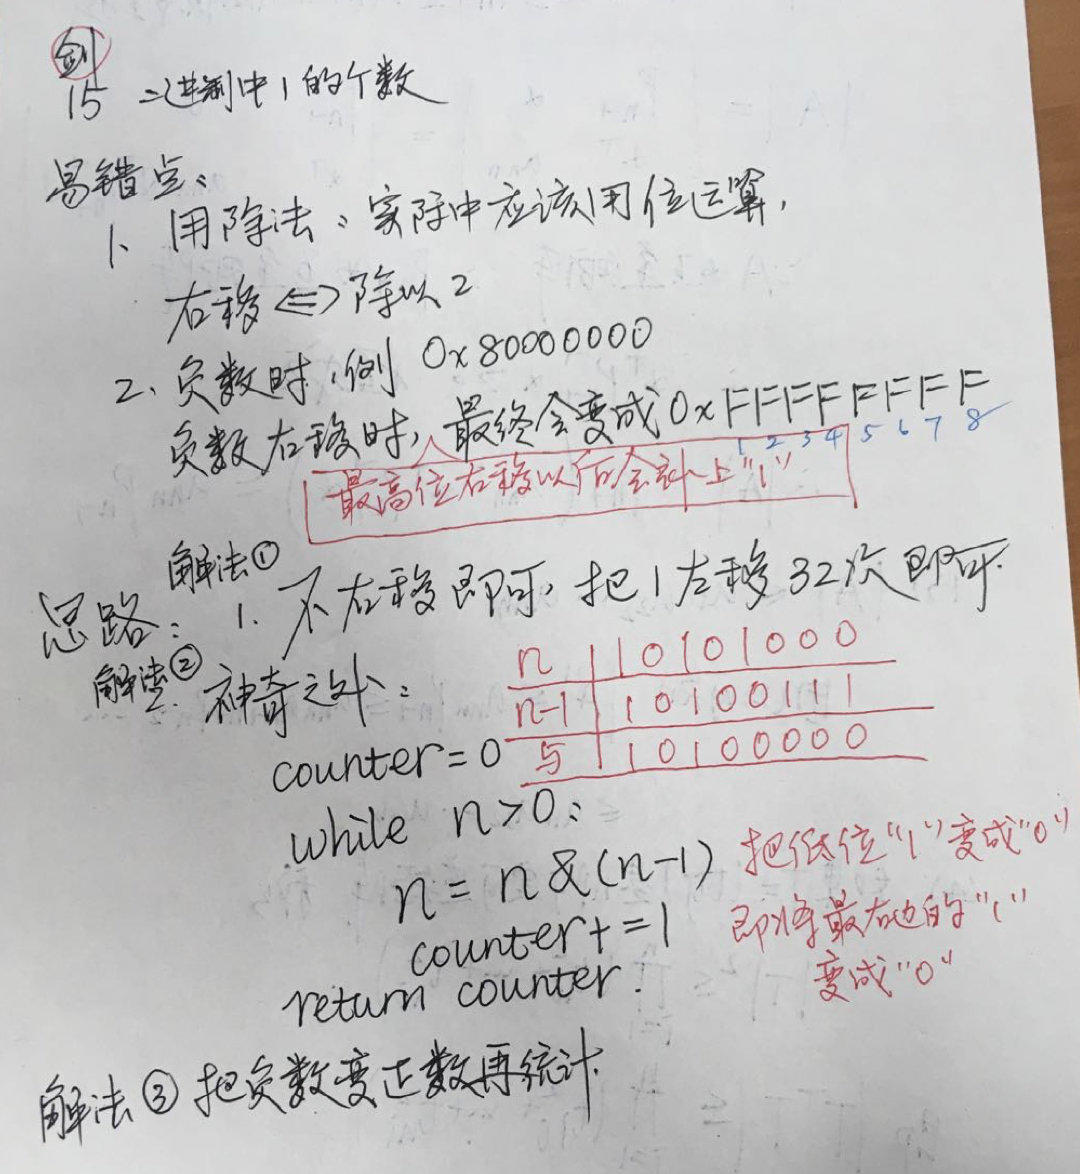 剑
15 二进制中1的个数
易错点:
1、用除法:实际中应该用位运算,
右移 <=> 除以2
2、负数时,例 0x80000000
负数右移时,最终会变成0xFFFFFFFF
1 2 3 4 5 6 7 8
最高位右移以后会补上"1"
解法①
思路: 1. 不右移即可,把1左移32次即可.
解法②. 神奇之处:
n | 10101000
n-1 | 10100111
与 | 10100000
counter=0
while n>0:
n = n&(n-1) 把低位"1"变成"0"
counter+=1 即将最右边的"1"
变成"0"
return counter.
解法③ 把负数变正数再统计.